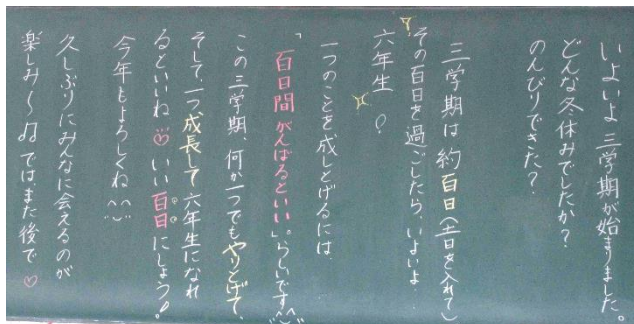 いよいよ三学期が始まりました。
どんな冬休みでしたか？
のんびりできた？
三学期は約百日（土日を入れて）
その百日を過ごしたら、いよいよ…
六年生！
一つのことを成しとげるには、
「百日間がんばるといい」。らしいです^^
この三学期、何か一つでもやりとげて、
そして、一つ成長して六年生になれ
るといいね♡いい百日にしよう！
今年もよろしくね^^
久しぶりにみんなに会えるのが
楽しみ～♫ではまた後で♡